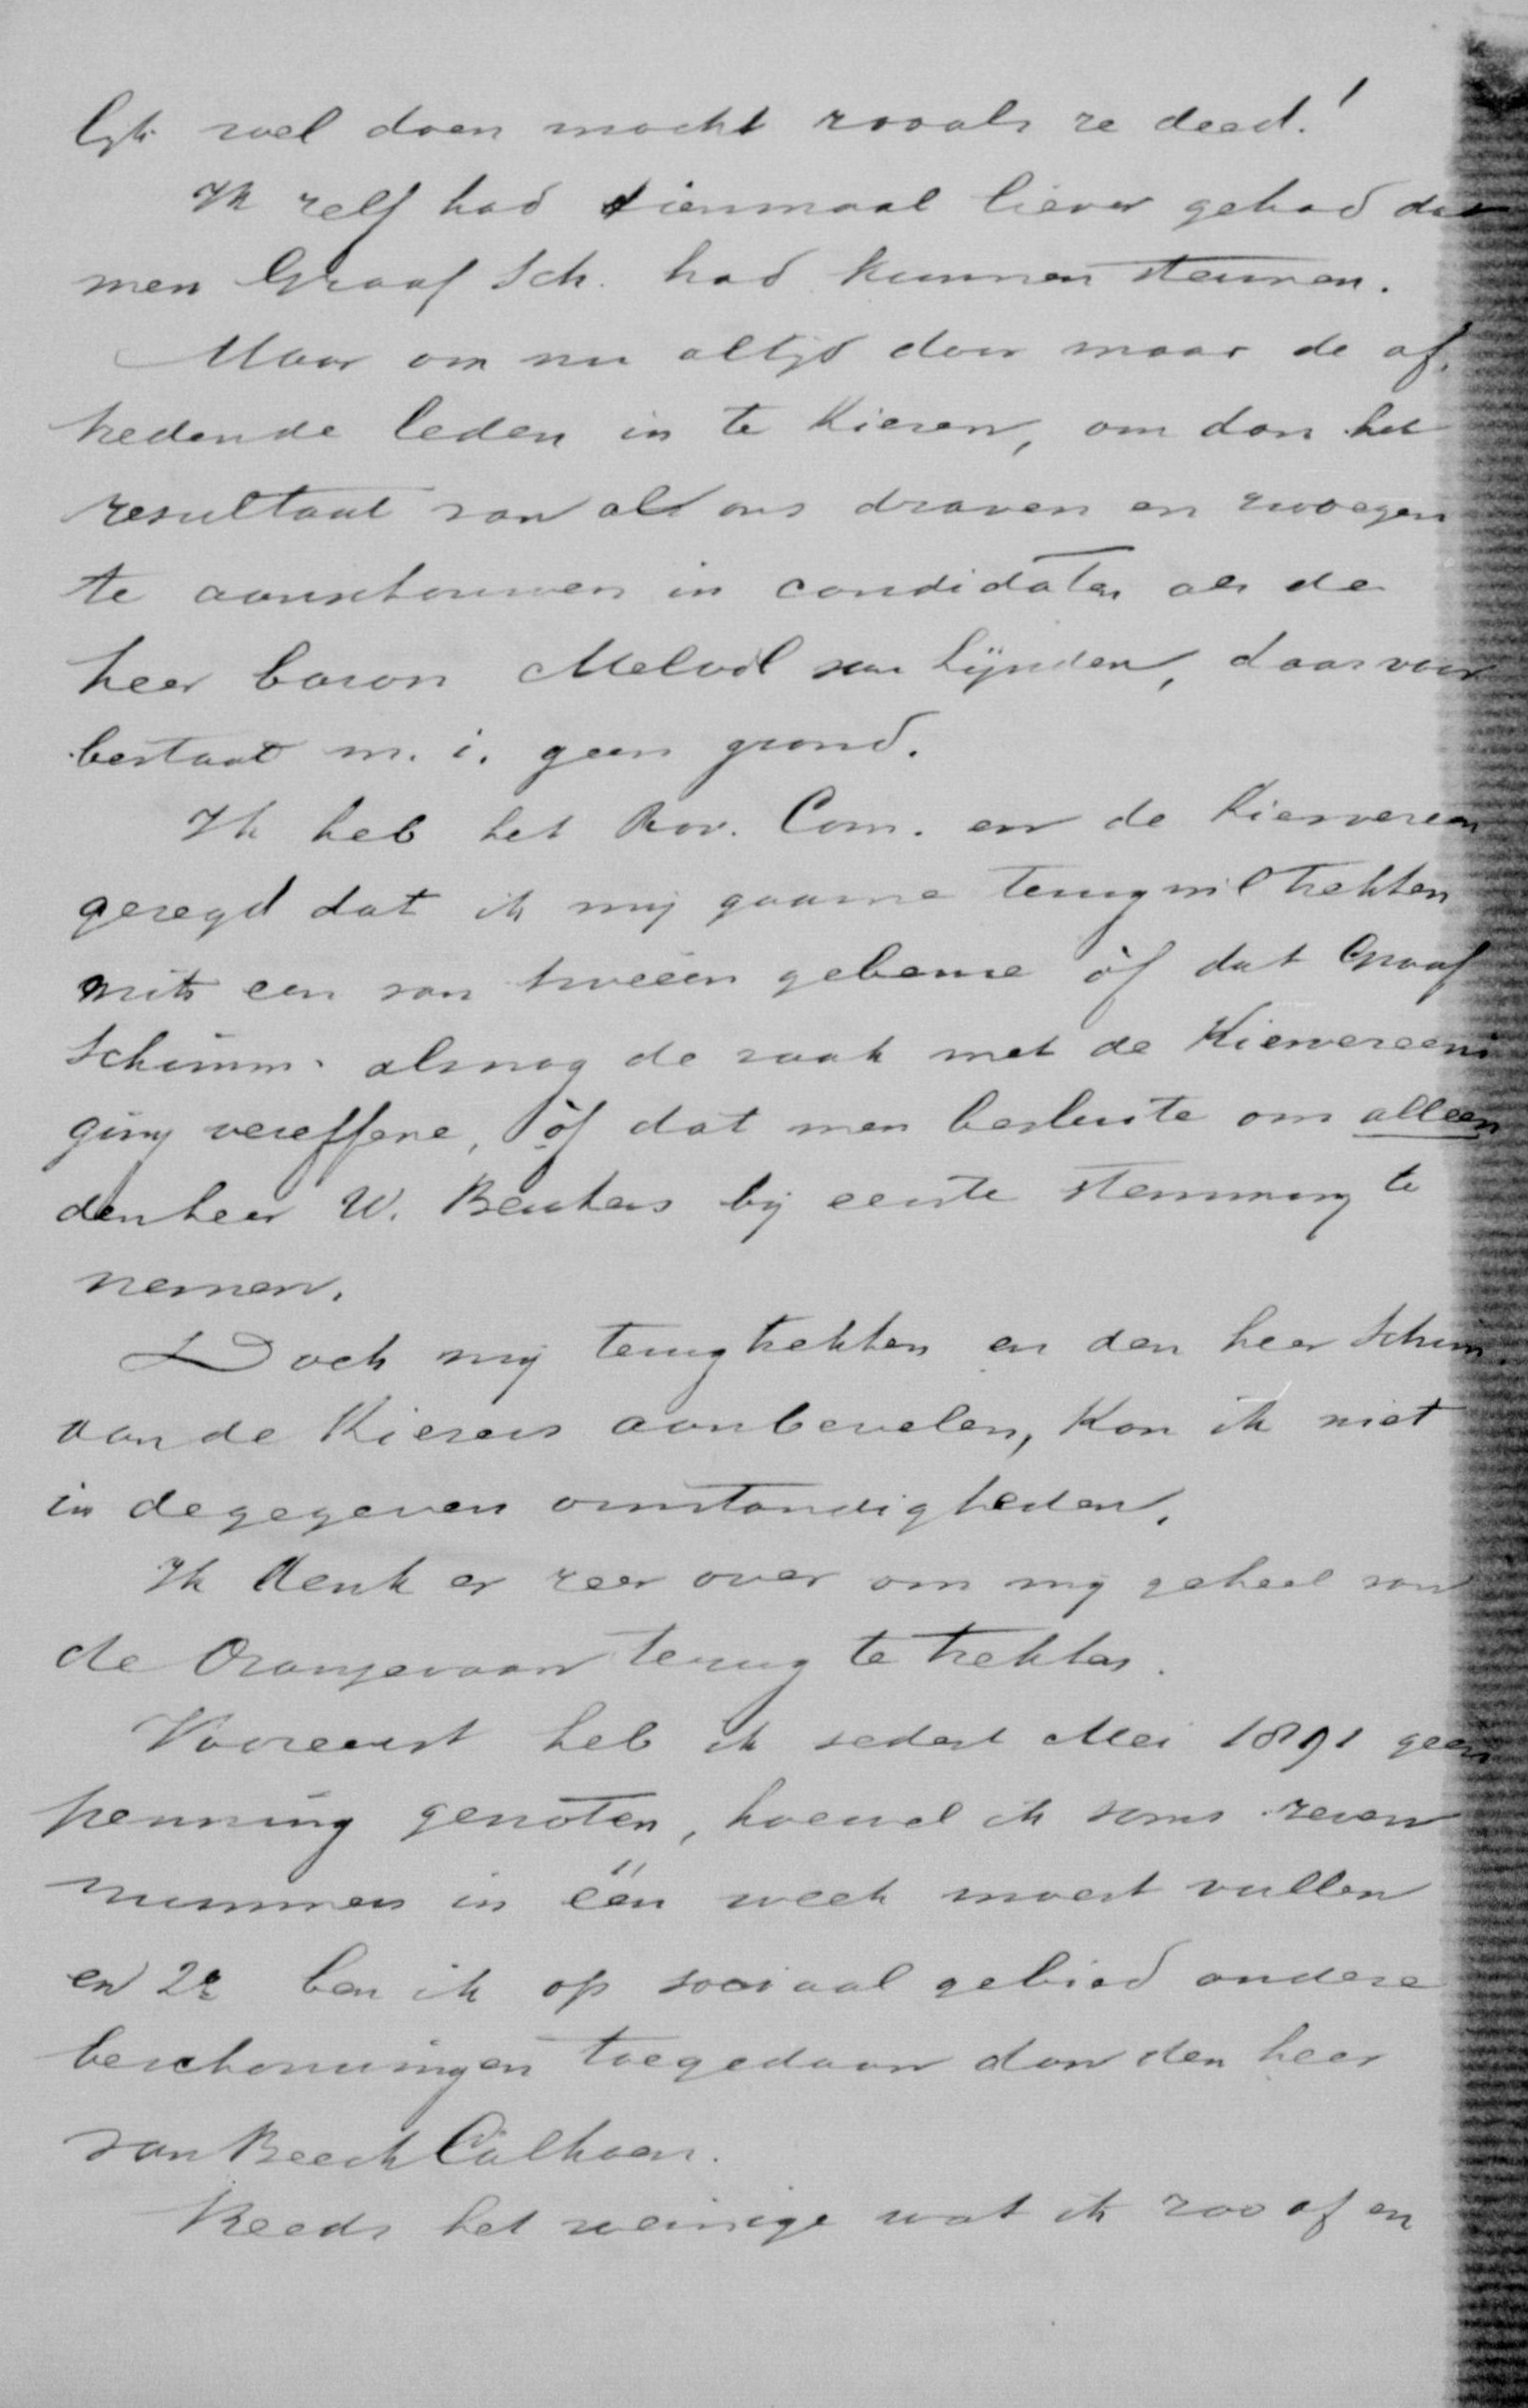 lijk wel doen mocht zooals ze deed!
Ik zelf had tienmaal liever gehad dat
men Graaf Sch. had kunnen steunen.
Maar om nu altijd door maar de af-
tredende leden in te kiezen, om dan het
resultaat van al ons draven en zwoegen
te aanschouwen in candidaten als de
heer baron Melvil van Lijnden, daarvoor
bestaat m. i. geen grond.
Ik heb het Prov. Com. en de Kiesvereen
gezegd dat ik mij gaarne terugwil trekken
mits een van tweeën gebeure òf dat Graaf
Schimm. alsnog de zaak met de Kiesvereeni
ging vereffene, òf dat men besluite om alleen
den heer W. Beukers bij eerste stemming te
nemen.
Doch mij terugtrekken en den heer Schim
aan de Kiezers aanbevelen, kon ik niet
in de gegeven omstandigheden.
Ik denk er zeer over om mij geheel van
de Oranjevaan terug te trekken.
Vooreerst heb ik sedert Mei 1891 geen
penning genoten, hoewel ik soms zeven
nummers in één week moest vullen
en 2e ben ik op sociaal gebied andere
beschouwingen toegedaan dan den heer
van Beeck Calkoen.
Reeds het weinige wat ik zoo af en